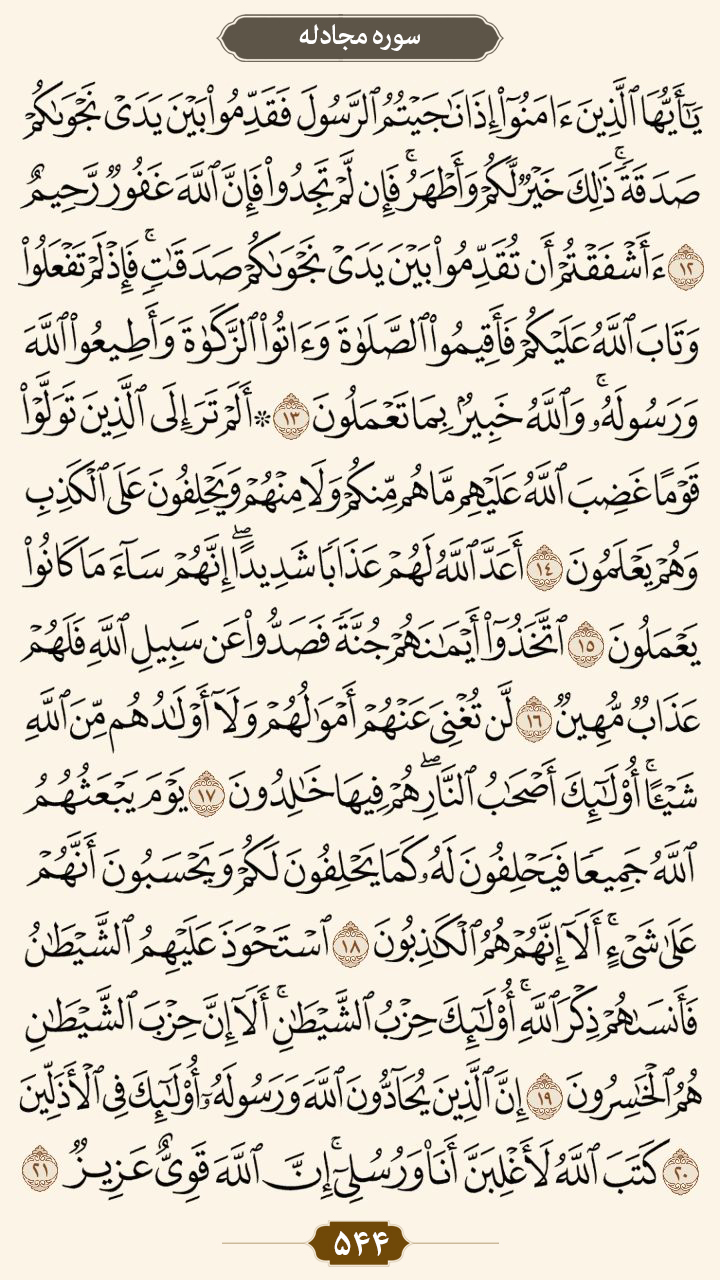 سوره مجادله
يَٰٓأَيُّهَا ٱلَّذِينَ ءَامَنُوٓاْ إِذَا نَٰجَيۡتُمُ ٱلرَّسُولَ فَقَدِّمُواْ بَيۡنَ يَدَيۡ نَجۡوَىٰكُمۡ
صَدَقَةٗۚ ذَٰلِكَ خَيۡرٞ لَّكُمۡ وَأَطۡهَرُۚ فَإِن لَّمۡ تَجِدُواْ فَإِنَّ ٱللَّهَ غَفُورٞ رَّحِيمٌ
١٢ ءَأَشۡفَقۡتُمۡ أَن تُقَدِّمُواْ بَيۡنَ يَدَيۡ نَجۡوَىٰكُمۡ صَدَقَٰتٖۚ فَإِذۡ لَمۡ تَفۡعَلُواْ
وَتَابَ ٱللَّهُ عَلَيۡكُمۡ فَأَقِيمُواْ ٱلصَّلَوٰةَ وَءَاتُواْ ٱلزَّكَوٰةَ وَأَطِيعُواْ ٱللَّهَ
وَرَسُولَهُۥۚ وَٱللَّهُ خَبِيرُۢ بِمَا تَعۡمَلُونَ ١٣ * أَلَمۡ تَرَ إِلَى ٱلَّذِينَ تَوَلَّوۡاْ
قَوۡمًا غَضِبَ ٱللَّهُ عَلَيۡهِم مَّا هُم مِّنكُمۡ وَلَا مِنۡهُمۡ وَيَحۡلِفُونَ عَلَى ٱلۡكَذِبِ
وَهُمۡ يَعۡلَمُونَ ١٤ أَعَدَّ ٱللَّهُ لَهُمۡ عَذَابٗا شَدِيدًاۖ إِنَّهُمۡ سَآءَ مَا كَانُواْ
يَعۡمَلُونَ ١٥ ٱتَّخَذُوٓاْ أَيۡمَٰنَهُمۡ جُنَّةٗ فَصَدُّواْ عَن سَبِيلِ ٱللَّهِ فَلَهُمۡ
عَذَابٞ مُّهِينٞ ١٦ لَّن تُغۡنِيَ عَنۡهُمۡ أَمۡوَٰلُهُمۡ وَلَآ أَوۡلَٰدُهُم مِّنَ ٱللَّهِ
شَيۡـًٔاۚ أُوْلَٰٓئِكَ أَصۡحَٰبُ ٱلنَّارِۖ هُمۡ فِيهَا خَٰلِدُونَ ١٧ يَوۡمَ يَبۡعَثُهُمُ
ٱللَّهُ جَمِيعٗا فَيَحۡلِفُونَ لَهُۥ كَمَا يَحۡلِفُونَ لَكُمۡ وَيَحۡسَبُونَ أَنَّهُمۡ
عَلَىٰ شَيۡءٍۚ أَلَآ إِنَّهُمۡ هُمُ ٱلۡكَٰذِبُونَ ١٨ ٱسۡتَحۡوَذَ عَلَيۡهِمُ ٱلشَّيۡطَٰنُ
فَأَنسَىٰهُمۡ ذِكۡرَ ٱللَّهِۚ أُوْلَٰٓئِكَ حِزۡبُ ٱلشَّيۡطَٰنِۚ أَلَآ إِنَّ حِزۡبَ ٱلشَّيۡطَٰنِ
هُمُ ٱلۡخَٰسِرُونَ ١٩ إِنَّ ٱلَّذِينَ يُحَآدُّونَ ٱللَّهَ وَرَسُولَهُۥٓ أُوْلَٰٓئِكَ فِي ٱلۡأَذَلِّينَ
٢٠ كَتَبَ ٱللَّهُ لَأَغۡلِبَنَّ أَنَا۠ وَرُسُلِيٓۚ إِنَّ ٱللَّهَ قَوِيٌّ عَزِيزٞ ٢١
۵۴۴